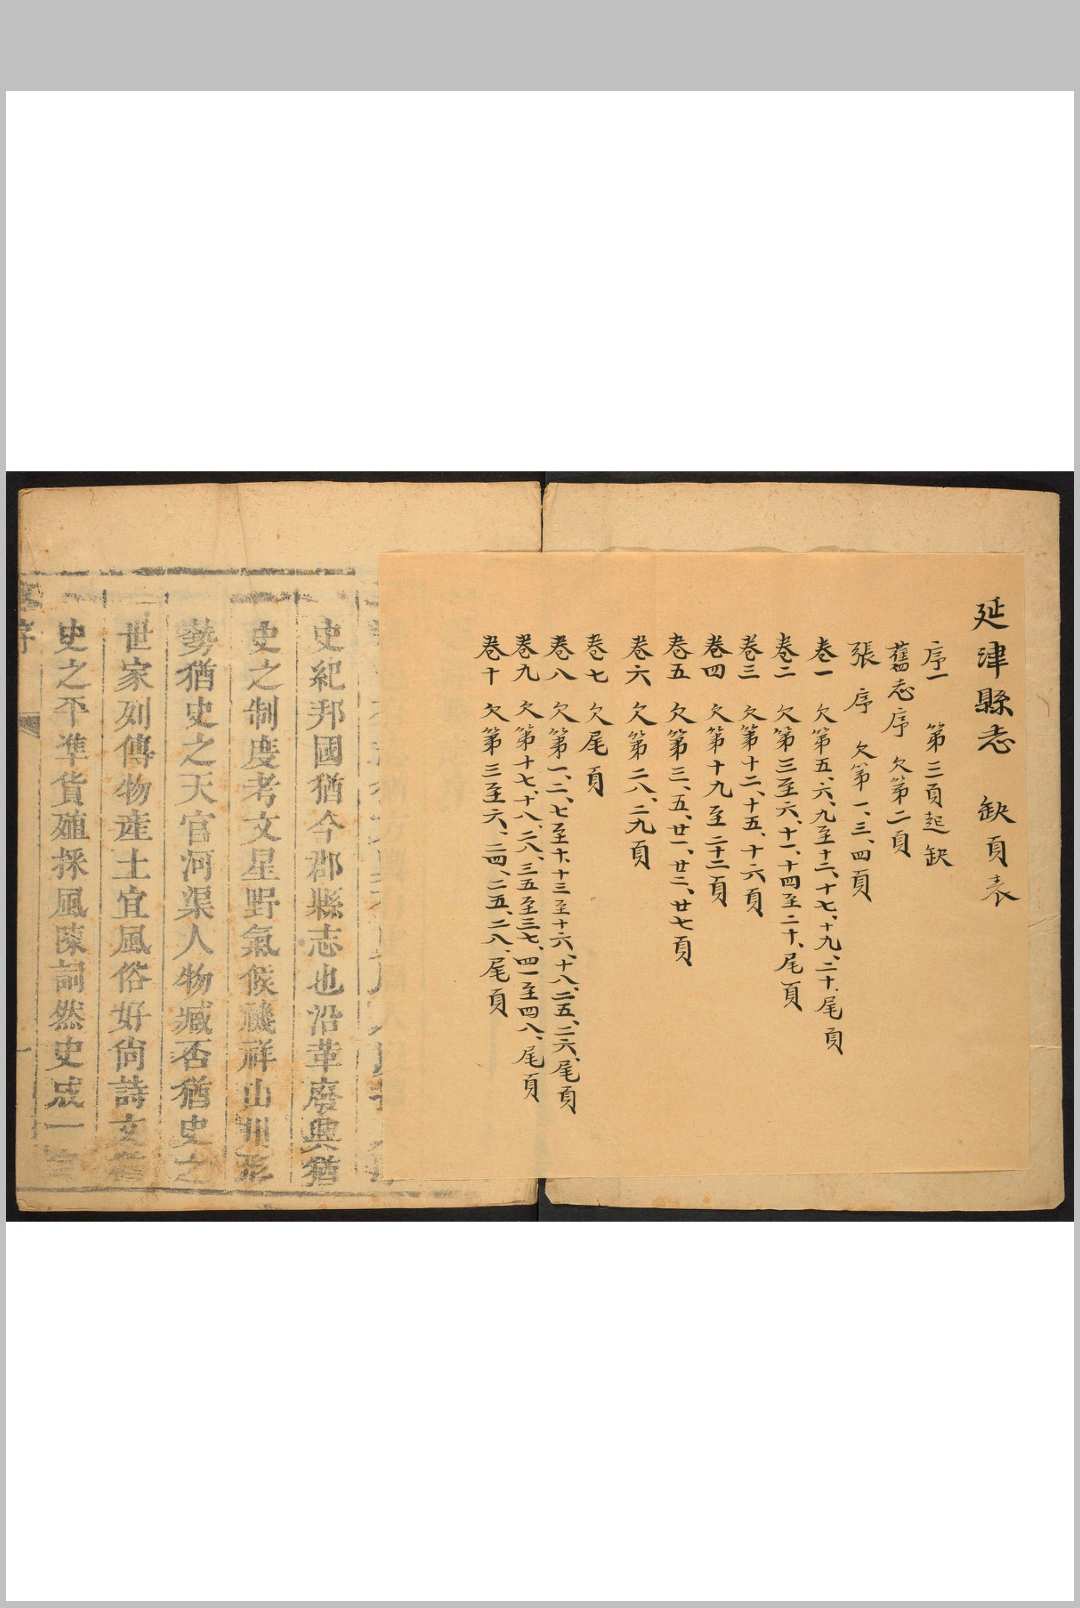 延津縣志　缺頁表
序一　第三頁起缺
舊志序　欠第二頁
張序　欠第一、三、四頁
卷一　欠第五、六、九至十二、十七、十九、二十、尾頁
卷二　欠第三至六、十一、十四至二十、尾頁
卷三　欠第十二、十五、十六頁
卷四　欠第十九至二十二頁
卷五　欠第三、五、廿一、廿二、廿七頁
卷六　欠第二八、二九頁
卷七　欠尾頁
卷八　欠第一、二、七至十、十三至十六、十八、二五、二六、尾頁
卷九　欠第十七、十八、二八、三五至三七、四一至四八、尾頁
卷十　欠第三至六、二四、二五、二八、尾頁
史紀邦國猶今郡縣志也沿革廢興猶
史之制度考文星野氣候禨祥山川形
勢猶史之天官河渠人物臧否猶史之
世家列傳物產土宜風俗好尚詩文猶
史之平準貨殖採風陳詞然史成一
序